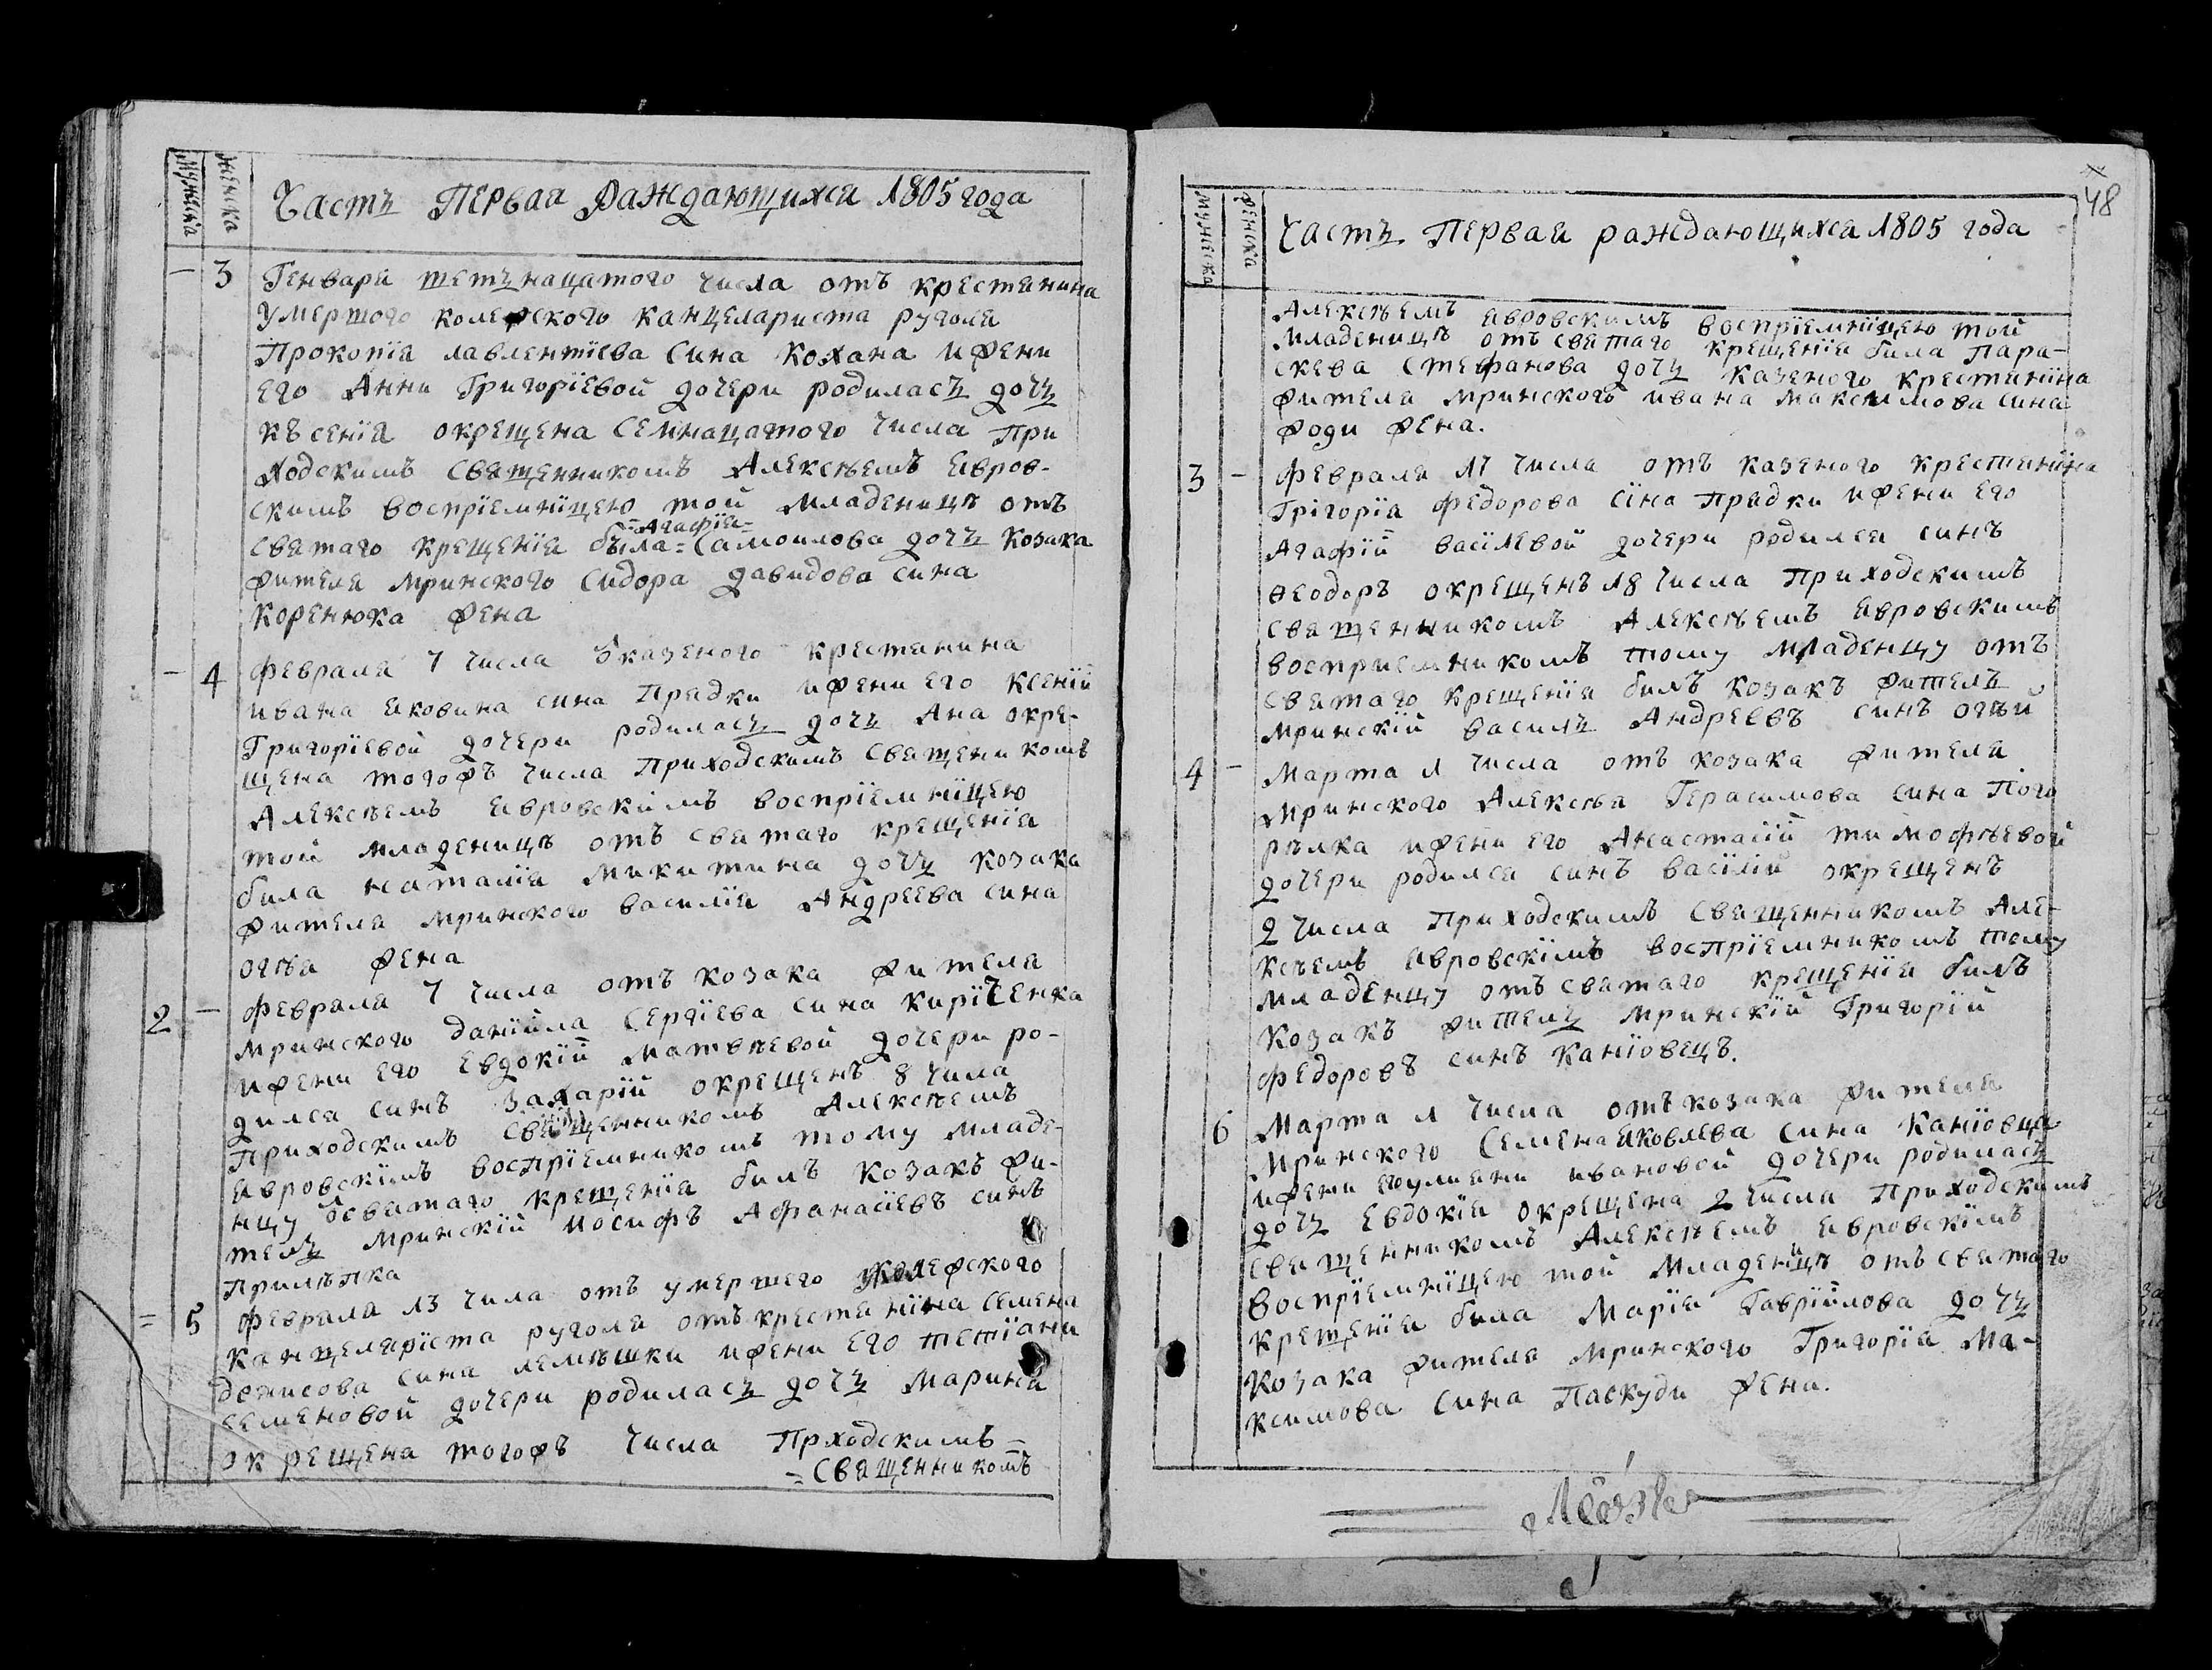 мужеска
женска
Часть Первая Раждающихся 1805 года
— 3 Генваря шетьнацатого числа отъ крестянина
умершого колежского канцелариста руголя
Прокопїя лавлентїева сина Кохана ижени
его Анни Григорїевой дочери родилась дочь
Къ сенїя окрещена семнацатого числа При
ходскимъ священникомъ Алексѣемъ Явров-
скимъ воспрїемнїцею той младеницѣ отъ
=Агафїя=
святаго крещенїя была = Самоилова дочь козака
жителя мринского Сидора давидова сина
коренюка жена
— 4 Февраля 7 числа ѿ казеного крестянина
ивана яковина сина Прядки ижени его Ксенїй
Григорїевой дочери родилась дочь Ана окре-
щена тогожъ числа Приходскимъ Священикомъ
Алексѣемъ Явровскимъ воспрїемнїцею
той младеницѣ отъ святаго крещенїя
била наталїя микитина дочь козака
жителя мринского василїя Андреева сина
огѣя жена
2 — Февраля 7 числа отъ козака жителя
мринского данїйла Сергїева сина кирїченка
ижени его Евдокїй матвѣевой дочери ро-
дился синъ Захарїй окрещенъ 8 чила
Приходскимъ священникомъ Алексѣемъ
Явровскїмъ воспрїемникомъ тому младе-
нцу ѿ святаго крещенїя билъ козакъ жи-
тель мринскїй иосифъ Афанасїевъ синъ
Прилѣпка
= 5 Февраля 13 чила отъ умершего колежского
канцеляриста руголя отъ крестянїна Семена
денисова сина лемѣшки ижени его тетїани
семеновой дочери родилась дочь Марина
окрещена тогожъ числа Прходскимъ=
=священникомъ
48
мужеска
женска
Часть Первая раждающихся 1805 года
Алексѣемъ Явровскимъ воспрїемнїцею той
младеницѣ отъ святаго крещенїя била Пара-
скева Стефанова дочь казеного крестянїна
жителя мринского ивана максимова сина
жена.
3 — Февраля 17 числа отъ казеного крестянїна
Грїгорїя Федорова сїна Прядки ижени его
Агафїй васїлевой дочери родился синъ
Ѳеодоръ окрещенъ 18 числа Приходскимъ
священникомъ Алексѣемъ Явровскимъ
восприемникомъ тому младенцу отъ
святаго крещенїя билъ козакъ житель
мринскїй василь Андреевъ синъ огѣй
4 — Марта 1 числа отъ козака жителя
мринского Алексѣя Герасимова сина Пого
рѣлка ижени его Анастасїй тимофѣевой
дочери родился синъ васїлїй окрещенъ
2 числа Приходскимъ священникомъ Але-
ксѣемъ Явровскїмъ воспрїемникомъ тому
младенцу отъ святаго крещенїя билъ
козакъ житель мринскїй Григорїй
Федоровъ синъ Канїовецъ.
6 Марта 1 числа отъ козака жителя
мринского Семена яковлева сина Канїовця
ижени иулияни ивановой дочери родилась
дочь Евдокїя окрещена 2 числа Приходскимъ
священникомъ Алексѣемъ Явровскїмъ
воспрїемнїцею той младеницѣ отъ святаго
крещенїя била Марїя Гаврїйлова дочь
козака жителя мринского Григорїя Ма-
ксимова сина Паскуди жена.